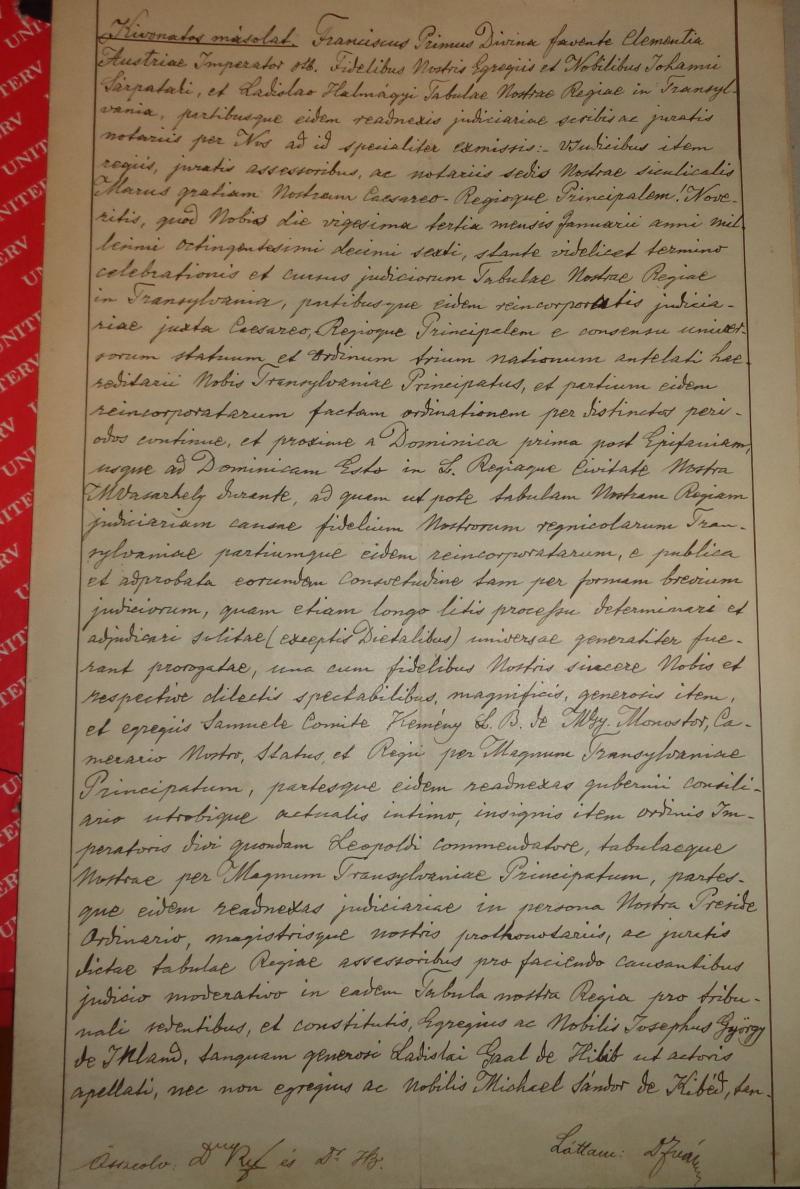 Kivonatos másolat. Franciscus Primus Divina favente Clementia
Austriae Imperator stb. Fidelibus Nostris Egregiis et Nobilibus Iohanni
Sárpataki, et Ladislao Halmágyi Tabulae Nostrae Regiae in Transyl-
vania, partibusque eidem readnexis judiciariae scribis ac juratis
notariis per Nos ad id specialiter exmissis:- Judicibus item
regiis, juratis assessoribus, ac notariis sedis Nostrae siculicalis
Marus gratiam Nostram Caesareo-Regioque Principalem! Nove-
ritis, quod Nobis die vigesima tertia mensis Januarii anni mil-
lesimi octingentesimi decimi sexti, stante videlicet termino
celebrationis et cursus judiciorum Tabulae Nostrae Regiae
in Transylvania, partibusque eidem reincorporatis judicia-
riae juxta Caesareo, Regioque Principalem e consensu univer-
sorum statuum et Ordinum trium nationum antelati hae-
reditarii Nobis Transylvaniae Principatus, et partium eidem
reincorporatarum factam ordinationem per distinctos peri-
odos continue, et proxime a Dominica prima post Epifaniam,
usque ad Dominicam Esto in L. Regiaque Civitate Nostra
MVásárhely durante, ad quem ut pote tabulam Nostram Regiam
judiciariam causae fidelium Nostrorum regnicolarum Tran-
sylvaniae partiumque eidem reincorporatarum, e publica
et adprobata eorundem consvetudine tam per formam brevium
judiciorum, quam etiam longo litis processu determinari et
adjudicari solitae (exceptis Dietalibus) universae generaliter fue-
rant prorogatae, una cum fidelibus Nostris sincere Nobis et
respective dilectis spectabilibus, magnificis, generosis item,
et egregiis Samuele Comite Kemény L. B. de MGy. Monostor, Ca-
merario Nostro, Status, et Regii per Magnum Transylvaniae
Principatum, partesque eidem readnexas gubernii consili-
ario utrobique actualis intimo, insignis item ordinis Im-
peratoris divi quondam Leopoldi commendatore, tabulaeque
Nostrae per Magnum Transylvaniae Principatum, partes-
que eidem readnexas judiciariae in persona Nostra Preside
Ordinario, magistrisque nostris prothonotariis, ac juratis
dictae tabulae Regiae assessoribus pro faciendo causantibus
judicio moderativo in eadem Tabula nostra Regia pro tribu-
nali sedentibus, et constitutis, Egregius ac Nobilis Iosephus György
de Ikland, tanquam generosi Ladislai Gaal de Hilib ut actoris
apellati, nec non egregius ac Nobilis Michael Sándor de Kibéd, tan-
és Dr
Láttam:
UNITERV
UNITERV
UNITERV